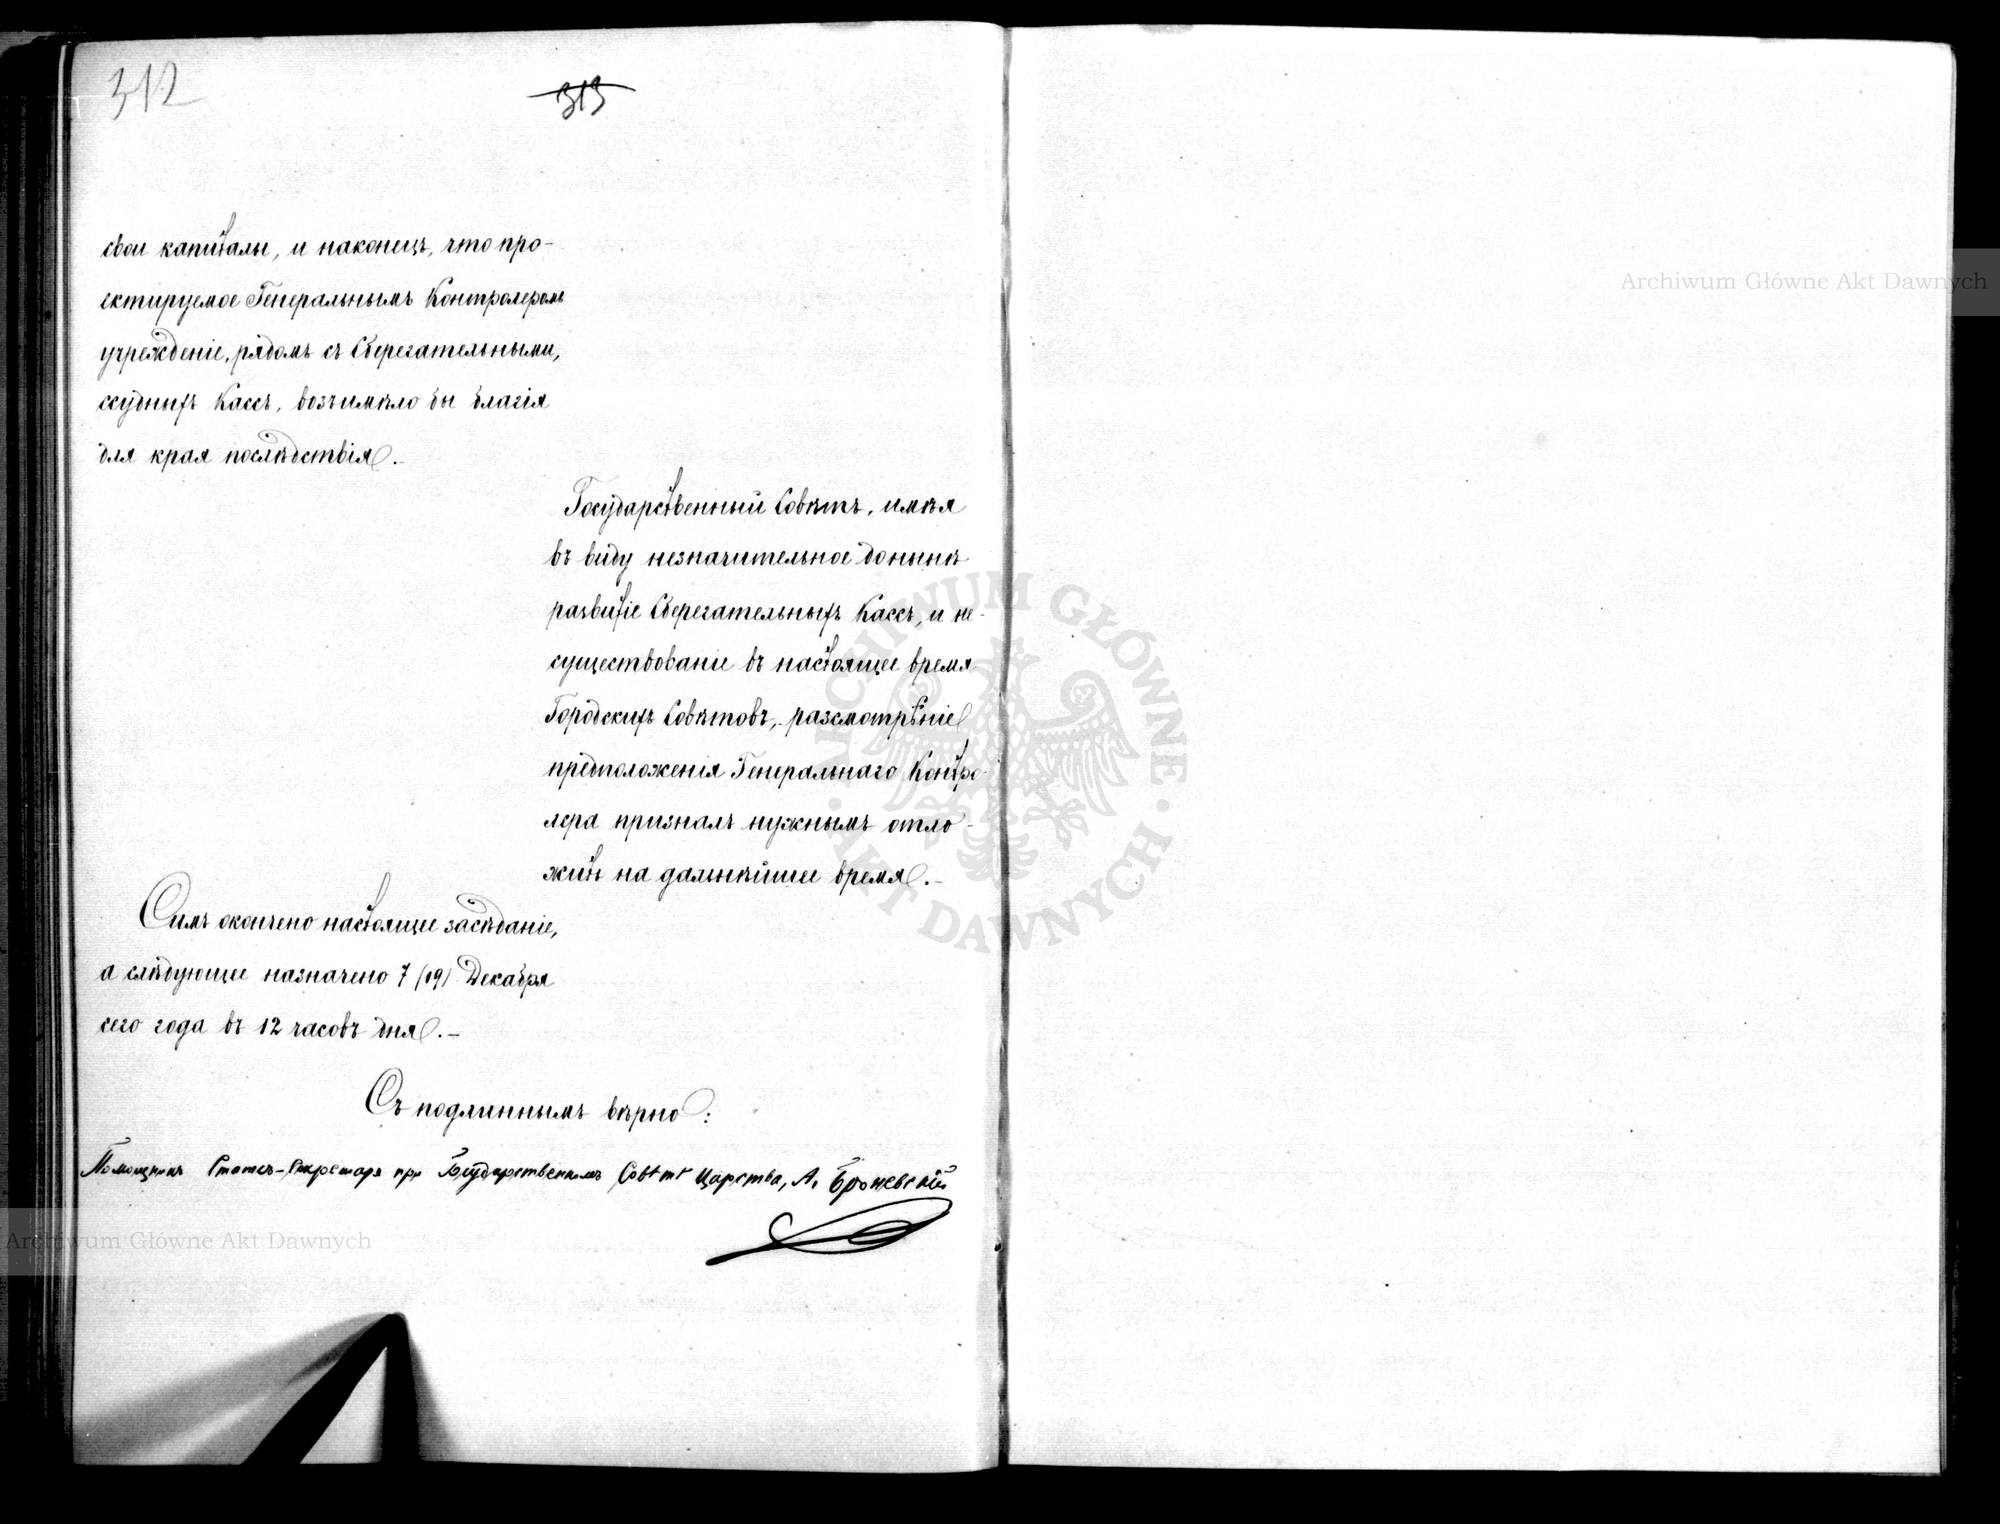 312
313
свои капиталы, и наконецъ, что про-
ектируемое Генеральнымъ Контролеромъ
учрежденіе, рядомъ съ Сберегательными,
ссудныхъ Кассъ, возъимѣло бы благія
для края послѣдствія.-
Государственный Совѣтъ, имѣя
въ виду незначительное донынѣ
развитіе Сберегательныхъ Кассъ, и не-
существованіе въ настоящее время
Городскихъ Совѣтовъ, разсмотрѣніе
предположенія Генеральнаго Контро-
лера призналъ нужнымъ отло-
жить на дальнѣйшее время.-
Симъ окончено настоящее засѣданіе,
а слѣдующее назначено 7 (19) Декабря
сего года въ 12 часовъ дня.-
Съ подлиннымъ вѣрно:
Помощникъ Статсъ-Секретаря при Государственномъ Совѣтѣ Царства, А. Броневскій
Archiwum Główne Akt Dawnych
Archiwum Główne Akt Dawnych
ARCHIWUM GŁÓWNE · AKT DAWNYCH ·